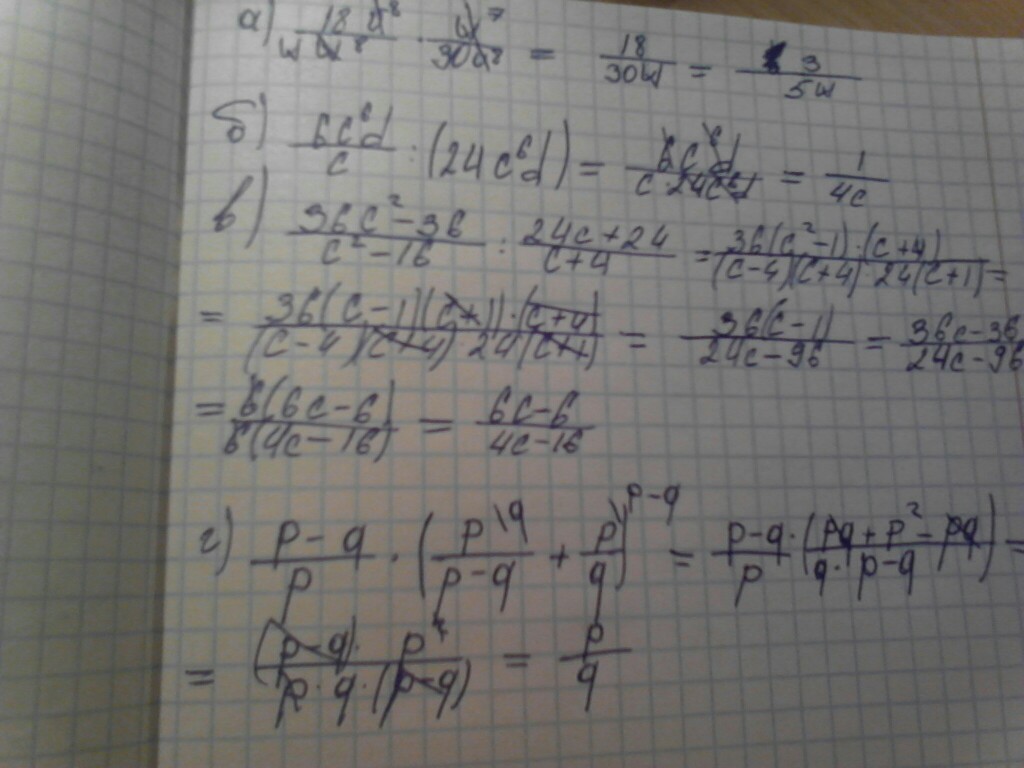 а) 18 d⁸ / и⁸ · и⁷ / 30d⁸ = 18 / 30и = 3 / 5и
б) 6c⁶d / c : (24c⁶d) = 6c⁶d / c·24c⁶d = 1 / 4c
в) 36c² − 36 / c² − 16 : 24c + 24 / c + 4 = 36(c² − 1)·(c + 4) / (c − 4)(c + 4)·24(c + 1) =
= 36(c − 1)(c + 1)·(c + 4) / (c − 4)(c + 4)·24(c + 1) = 36(c − 1) / 24c − 96 = 36c − 36 / 24c − 96
= 6(6c − 6) / 6(4c − 16) = 6c − 6 / 4c − 16
г) p − q / p · (p\q / p − q + p\p−q / q) = p − q / p · (pq + p² − pq / q·p − q) =
= (p − q)·p² / p·q·(p − q) = p / q